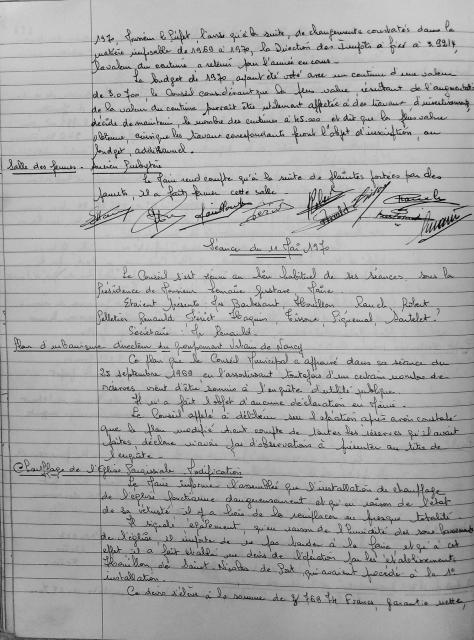 1970, Monsieur le Préfet, l'avise qu'à la suite, de changements constatés dans la
matière imposable de 1969 à 1970, la Direction des Impôts a fixé à 3.9214,
la valeur du centime à retenir pour l'année en cours.
Le budget de 1970, ayant été voté avec un centime d'une valeur
de 3.0700, le Conseil considérant que la plus value, résultant de l'augmentation
de la valeur du centime pourrait être utilement affectée à des travaux d'investissement,
décide de maintenir, le nombre des centimes à 45.000 et dit que la plus value
obtenue, ainsi que les travaux correspondants feront l'objet d'inscription, au
budget, additionnel.
Salle des jeunes - ancien Presbytère
Le Maire rend compte qu'à la suite de plaintes portées par des
parents, il a fait fermer cette salle.
Séance du 11 Mai 1970
Le Conseil s'est réuni au lieu habituel de ses séances, sous la
Présidence de Monsieur Lemaire Gustave Maire
Etaient présents Mr Barbesant, Houillon Rauch, Robert
Pelletier Renauld, Haquin, Tissone,
Secrétaire Mr Renauld.
Plan d'urbanisme directeur du groupement Urbain de Nancy
Ce plan que le Conseil Municipal a approuvé dans sa séance du
25 septembre 1969 en l'assortissant toutefois d'un certain nombre de
réserves vient d'être soumis à l'enquête d'utilité publique.
Il n'a fait l'objet d'aucune déclaration en Mairie.
Le Conseil appelé à délibérer sur l'opération après avoir constaté
que le plan modifié tient compte de toutes les réserves qu'il avait
faites déclare n'avoir pas d'observations à présenter au titre de
l'enquête.
Chauffage de l'Eglise Paroissiale Modification
Le Maire informe l'assemblée que l'installation de chauffage
de l'église fonctionne dangereusement et qu'en raison de l'état
de sa vétusté il y a lieu de la remplacer en presque totalité.
Il signale également, qu'en raison de l'humidité des sous bassements
de l'église, il importe de ne pas tarder à le faire et qu'à cet
effet il a fait établir un devis de l'opération par les établissements
Houillon de Saint Nicolas de Port, qui avaient procédé à la 1e
installation.
Ce devis s'élève à la somme de 8.768,74 Francs, garantie nette,